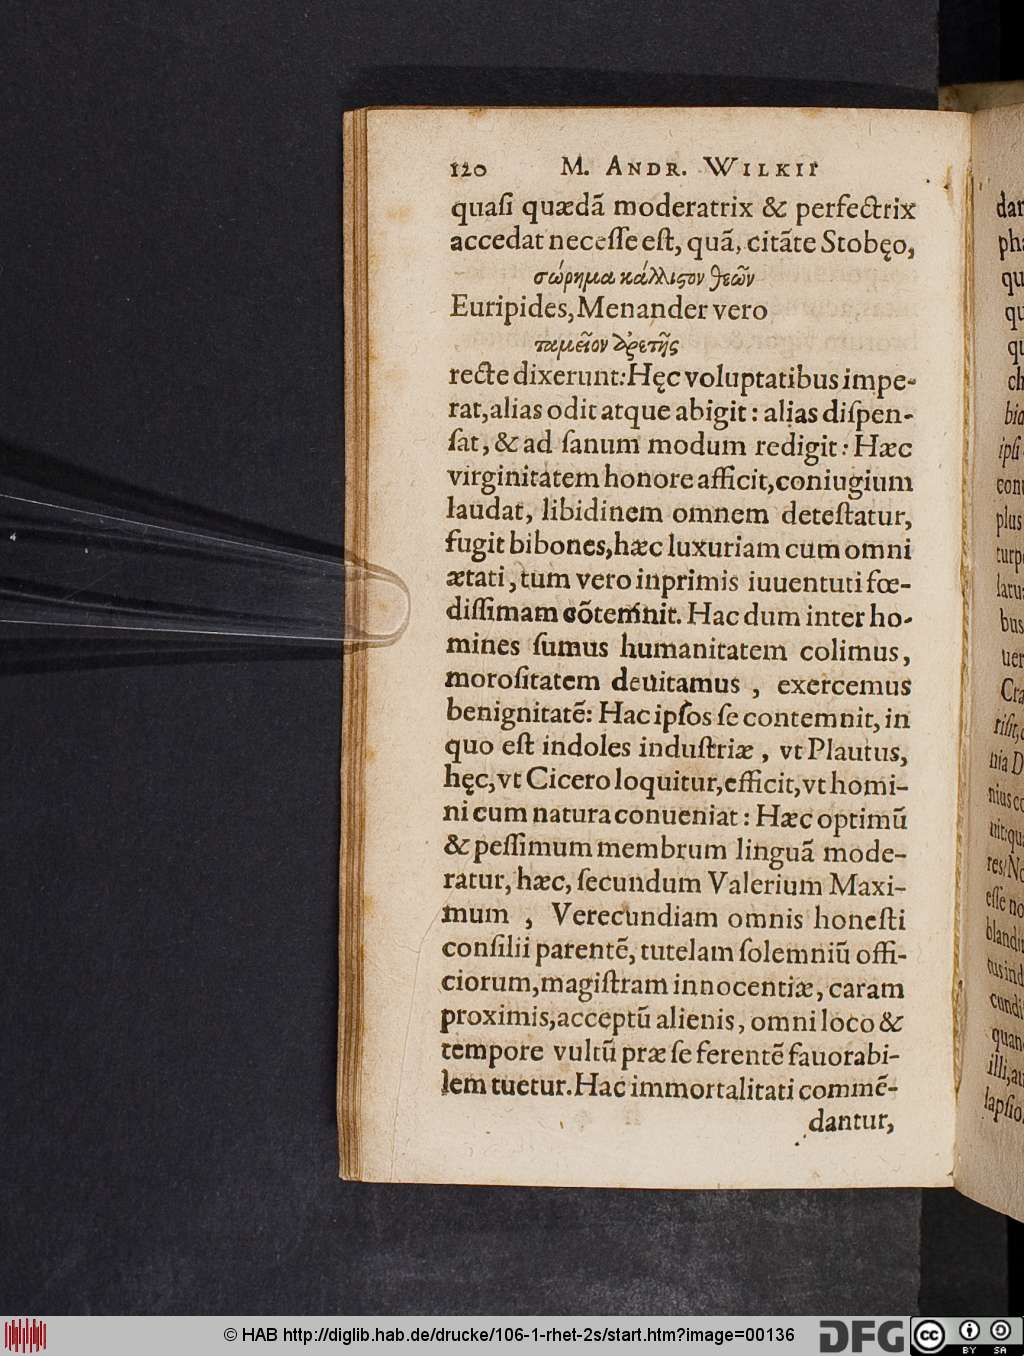 120 M. ANDR. WILKII
quaſi quædã moderatrix & perfectrix
accedat neceſſe eſt, quã, citãte Stobęo,
σώρημα κάλλιϛον θεῶν
Euripides, Menander vero
ταμεῖον ἀρετῆς
recte dixerunt: Hęc voluptatibus impe-
rat, alias odit atque abigit: alias diſpen-
ſat, & ad ſanum modum redigit: Hæc
virginitatem honore afficit, coniugium
laudat, libidinem omnem deteſtatur,
fugit bibones, hæc luxuriam cum omni
ætati, tum vero inprimis iuuentuti fœ-
diſſimam cõtemnit. Hac dum inter ho-
mines ſumus humanitatem colimus,
moroſitatem deuitamus, exercemus
benignitatẽ: Hac ipſos ſe contemnit, in
quo eſt indoles induſtriæ, vt Plautus,
hęc, vt Cicero loquitur, efficit, vt homi-
ni cum natura conueniat: Hæc optimũ
& peſſimum membrum linguã mode-
ratur, hæc, ſecundum Valerium Maxi-
mum, Verecundiam omnis honeſti
conſilii parentẽ, tutelam ſolemniũ offi-
ciorum, magiſtram innocentiæ, caram
proximis, acceptũ alienis, omni loco &
tempore vultũ præ ſe ferentẽ fauorabi-
lem tuetur. Hac immortalitati commẽ-
dantur,
© HAB http://diglib.hab.de/drucke/106-1-rhet-2s/start.htm?image=00136
DFG
cc BY SA